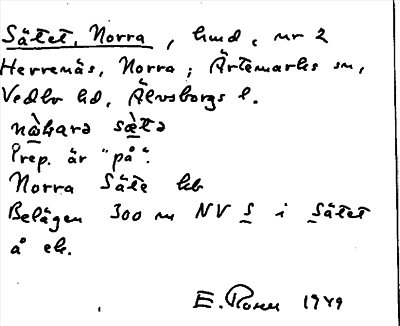 Sätet, Norra, lmd, nr 2
Herrenäs, Norra; Ärtemarks sn,
Vedbo hd, Älvsborgs l.
nàhara sæ̀tə
Prep. är "på".
Norra Säte kb
Belägen 300 m NV S i Sätet
å ek.
E. 1949